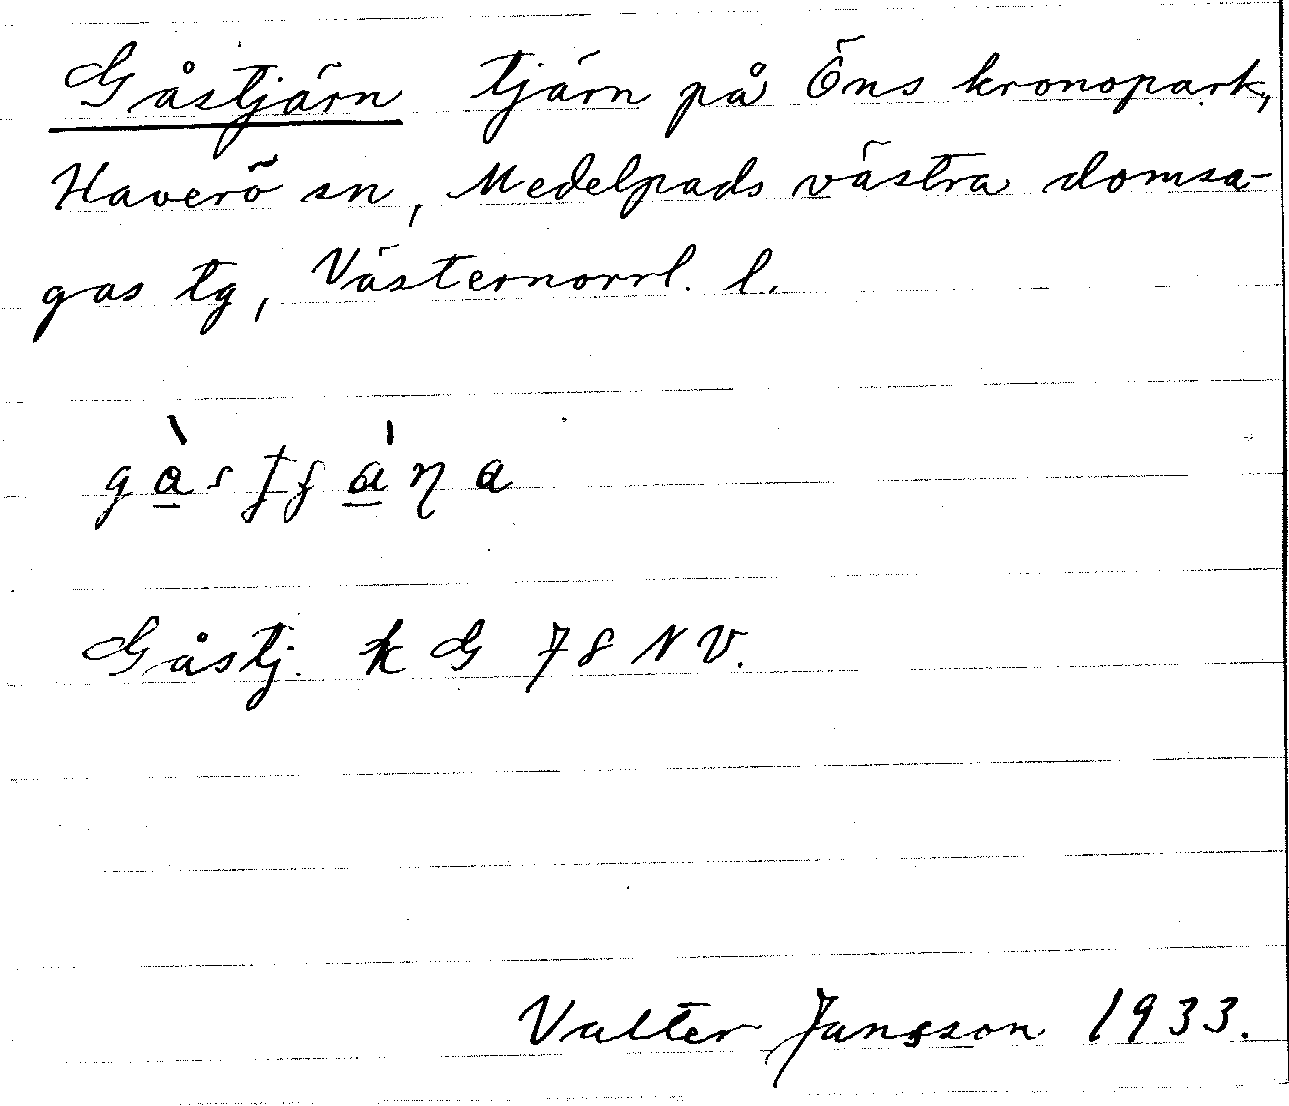 Gåstjärn tjärn på Öns kronopark,
Haverö sn, Medelpads västra domsa-
gas tg, Västernorrl. l.
Gåstj. k G 78 NV.
Valter Jansson 1933.